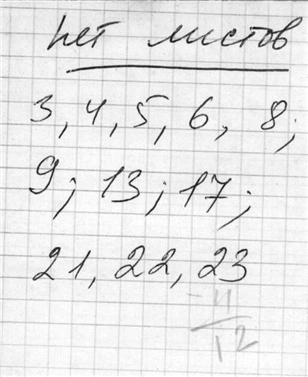 нет листов
3, 4, 5, 6, 8;
9; 13; 17;
21, 22, 23
-11
12